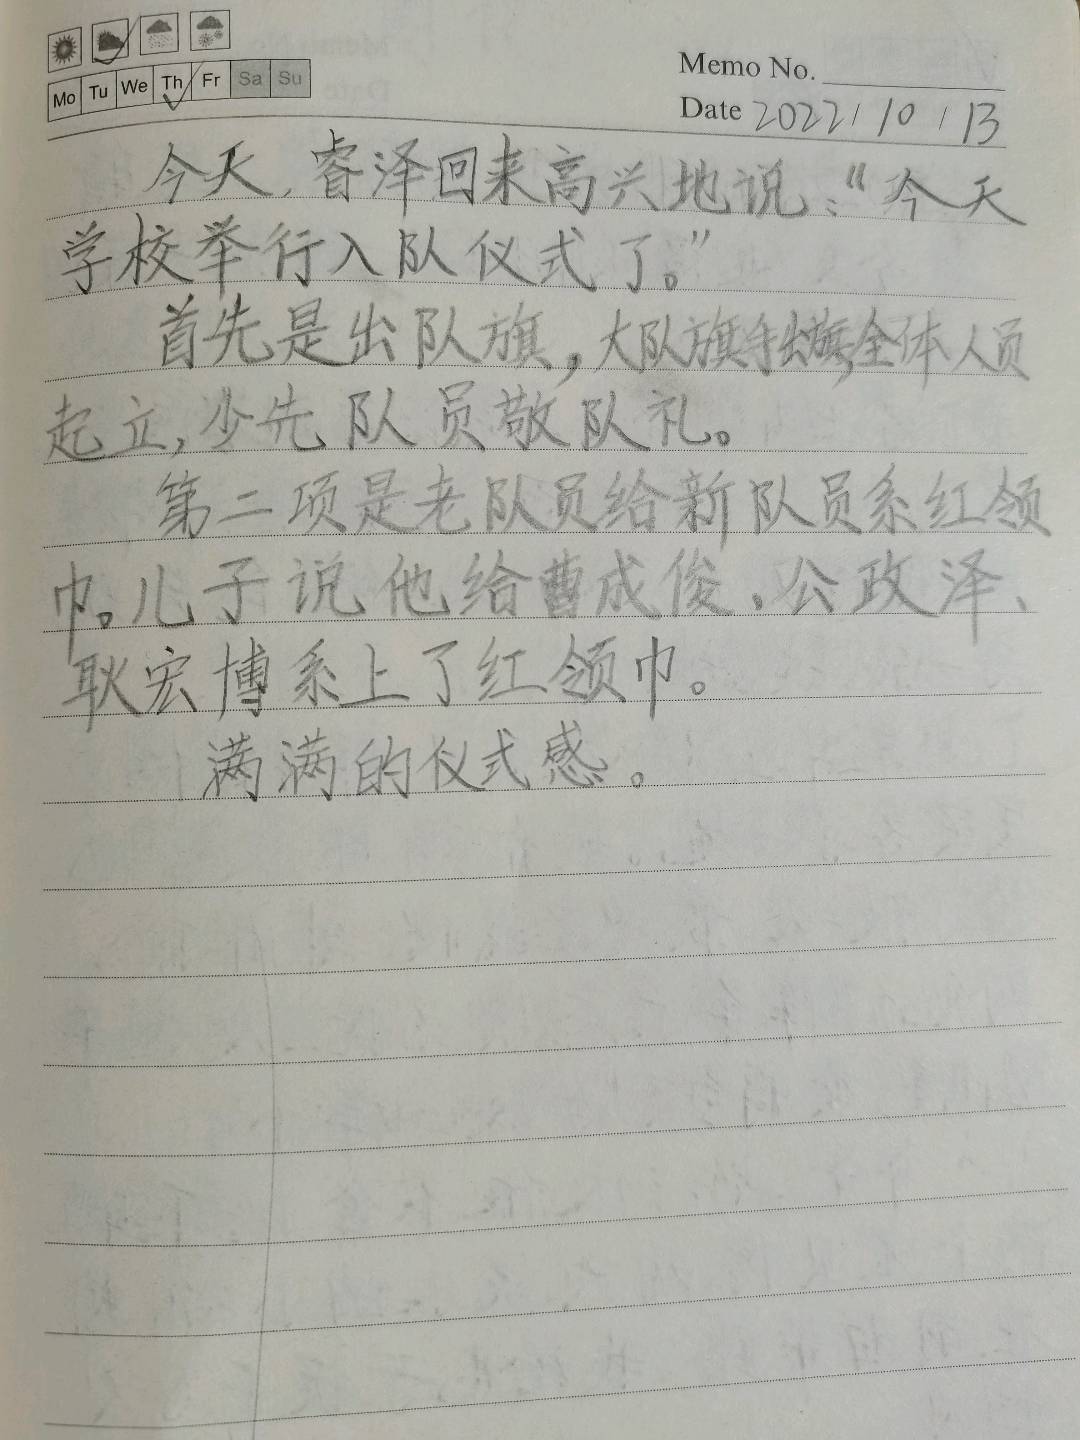 Mo Tu We Th Fr Sa Su
Memo No.
Date 2022 / 10 / 13
今天,睿泽回来高兴地说:“今天
学校举行入队仪式了。”
首先是出队旗,大队旗手出旗,全体人员
起立,少先队员敬队礼。
第二项是老队员给新队员系红领
巾。儿子说他给曹成俊、公政泽、
耿宏博系上了红领巾。
满满的仪式感。